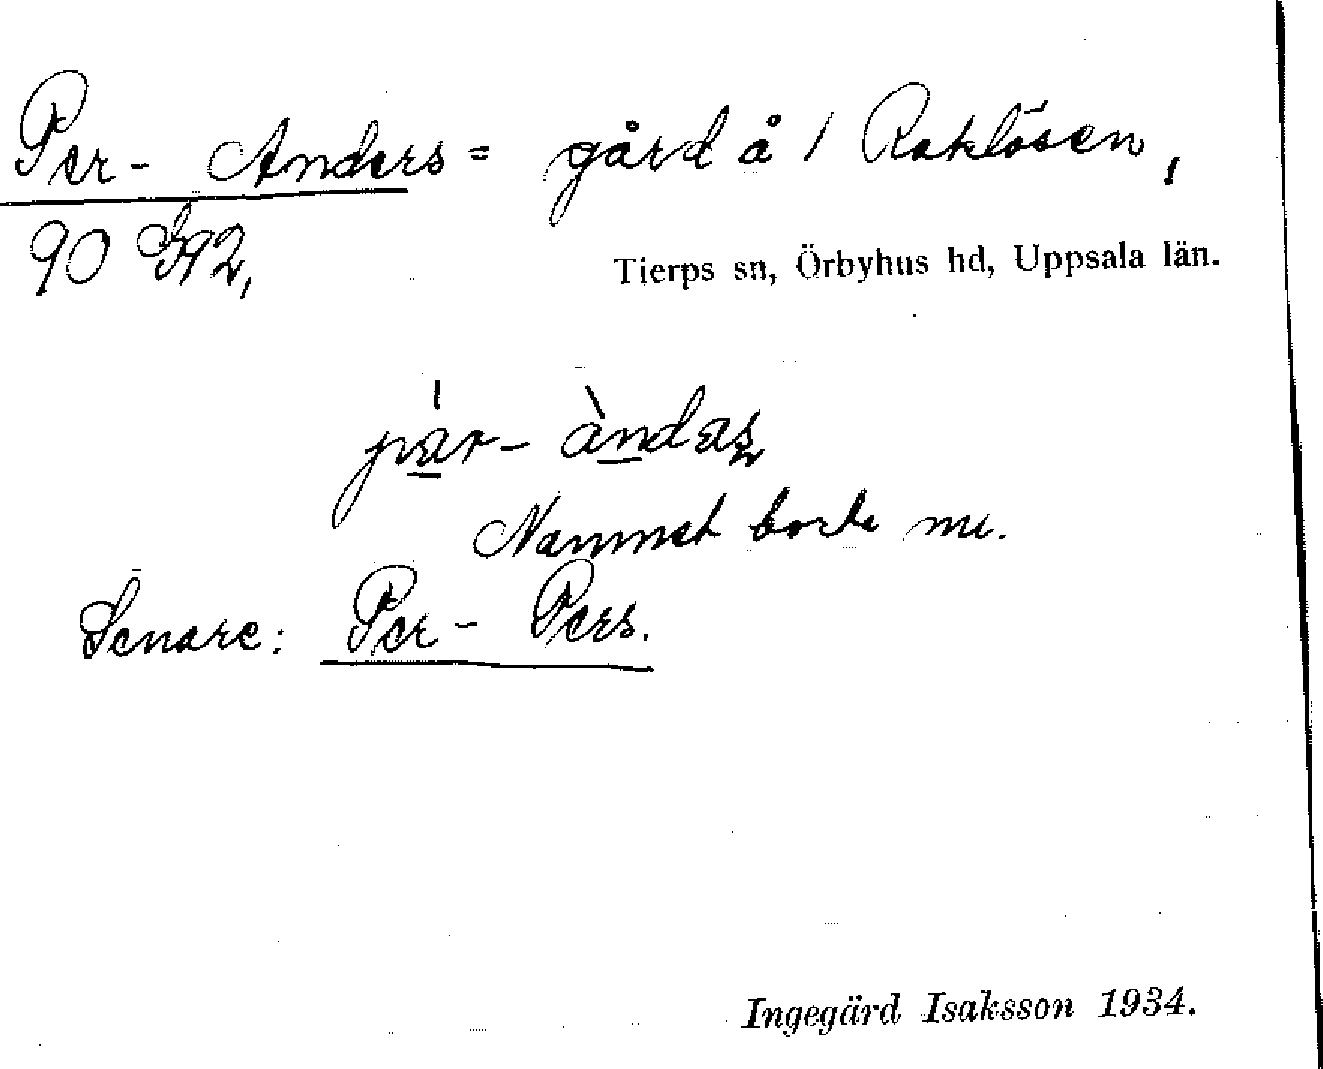 Per-Anders = gård å / Roklösen,
90 G92,
Tierps sn, Örbyhus hd, Uppsala län.
pær-ándas
Namnet borta nu.
Senare: Per-Pers.
Ingegärd Isaksson 1934.